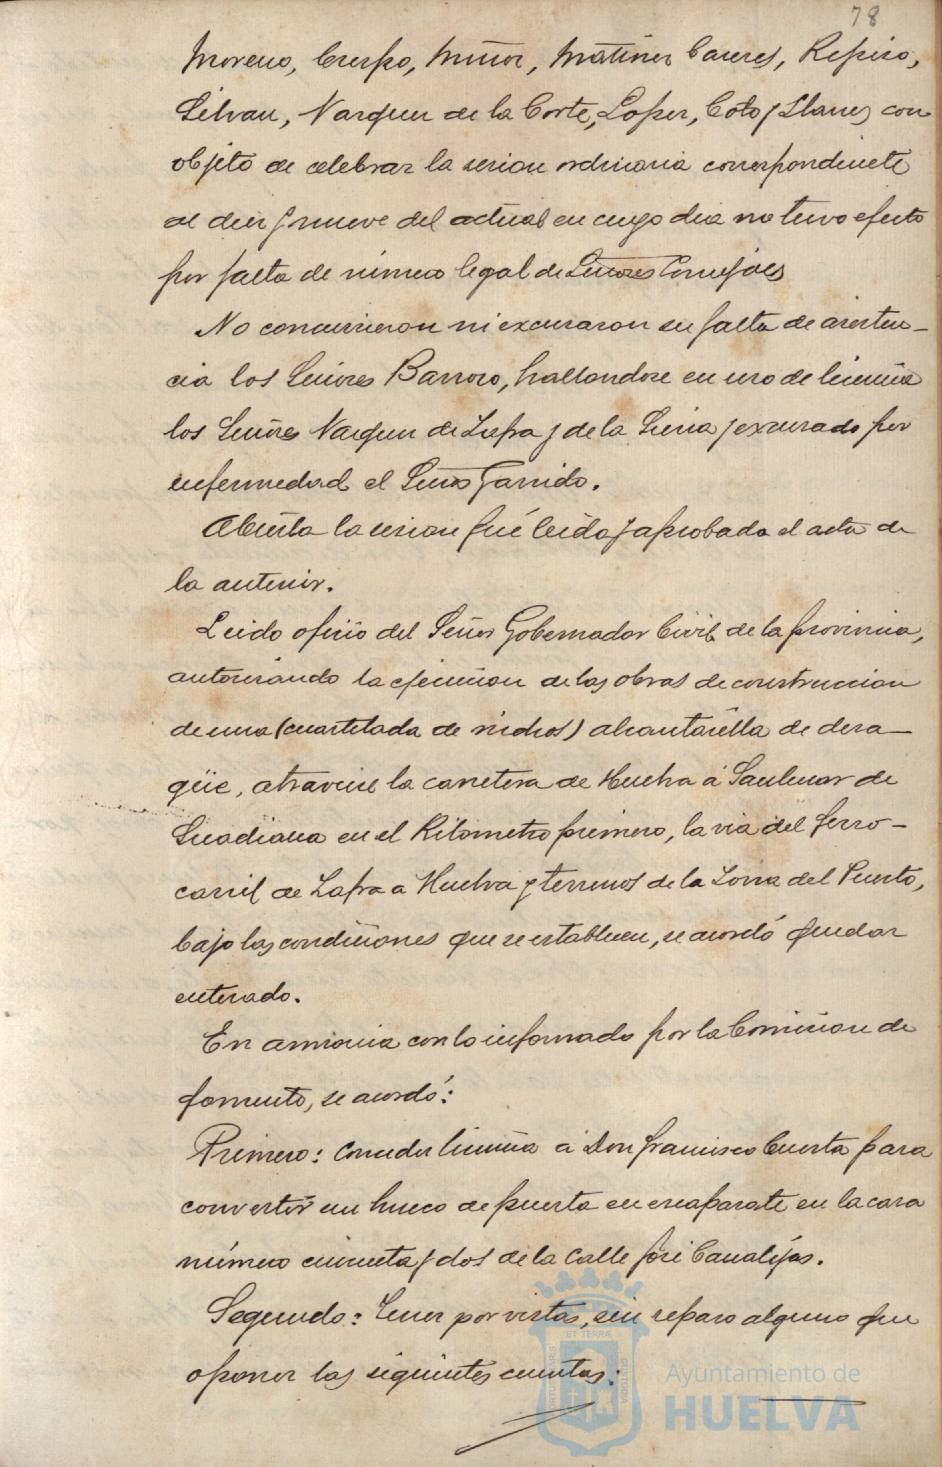 78
Moreno, Crespo, Muñoz, Martinez Caceres, Repiso,
Silvan, Vazquez de la Corte, Lopez, Coto y Llanes con
objeto de celebrar la sesion ordinaria correspondiente
al diez y nueve del actual en cuyo dia no tuvo efecto
por falta de número legal de Señores Concejales
No concurrieron ni excusaron su falta de asisten-
cia los Señores Barroso, hallandose en uso de licencia
los Señores Vazquez de Zafra y de la y excusado por
enfermedad el Señor Garrido.
Abierta la sesion fué leida y aprobada el acta de
la anterior.
Leido oficio del Señor Gobernador Civil de la provincia,
autorizando la ejecucion de las obras de construccion
de una (cuartelada de nichos) alcantarilla de desa-
güe, atraviese la carretera de Huelva á Sanlucar de
Guadiana en el Kilometro primero, la via del ferro-
carril de Zafra a Huelva y terrenos de la Zona del Puerto,
bajo las condiciones que se establecen, se acordó quedar
enterado.
En armonia con lo informado por la Comision de
fomento, se acordó:
Primero: Conceder licencia á Don Francisco Cuesta para
convertir un hueco de puerta en escaparate en la casa
número cincuenta y dos de la calle José Canalejas.
Segundo: Tener por vistas, sin reparo alguno que
oponer las siguientes cuentas:
Ayuntamiento de
HUELVA